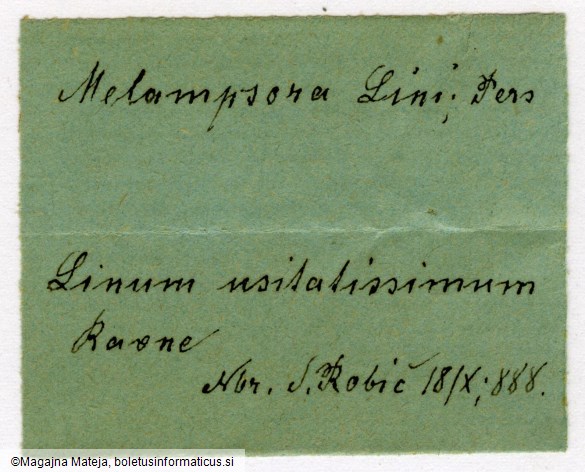 Melampsora Lini; Pers
Linum usitatissimum
Ravne
Nbr. S. Robič 18/X; 888.
©Magajna Mateja, boletusinformaticus.si